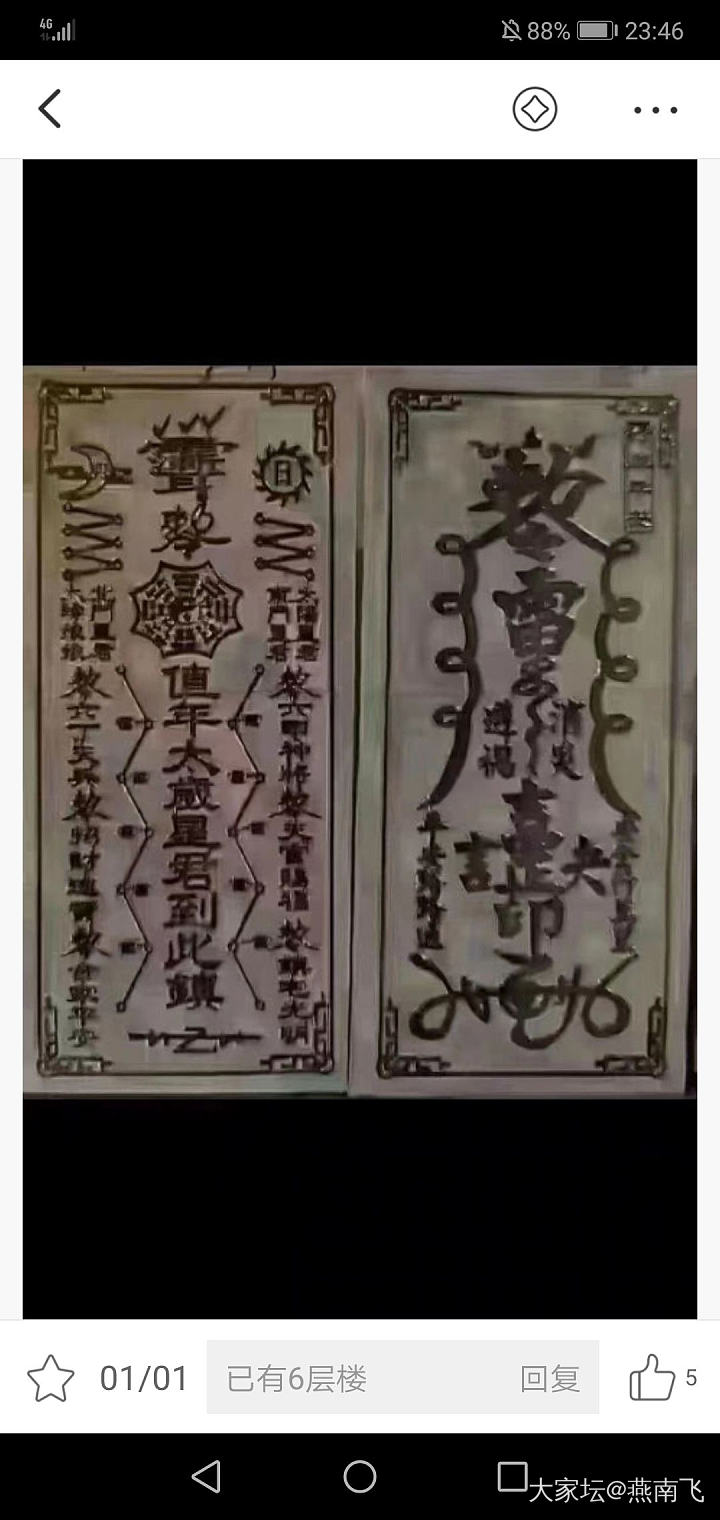 4G
88%
23:46
日
敕
太陰娘娘
北斗星君
南斗星君
太陽星君
值年太歲星君到此鎮
敕六丁天兵敕招財進寶敕合家平安
敕六甲神將敕天官賜福敕鎮宅光明
敕
雷
消災
謹
印
平安
01/01
已有6层楼
回复
5
大家坛@燕南飞